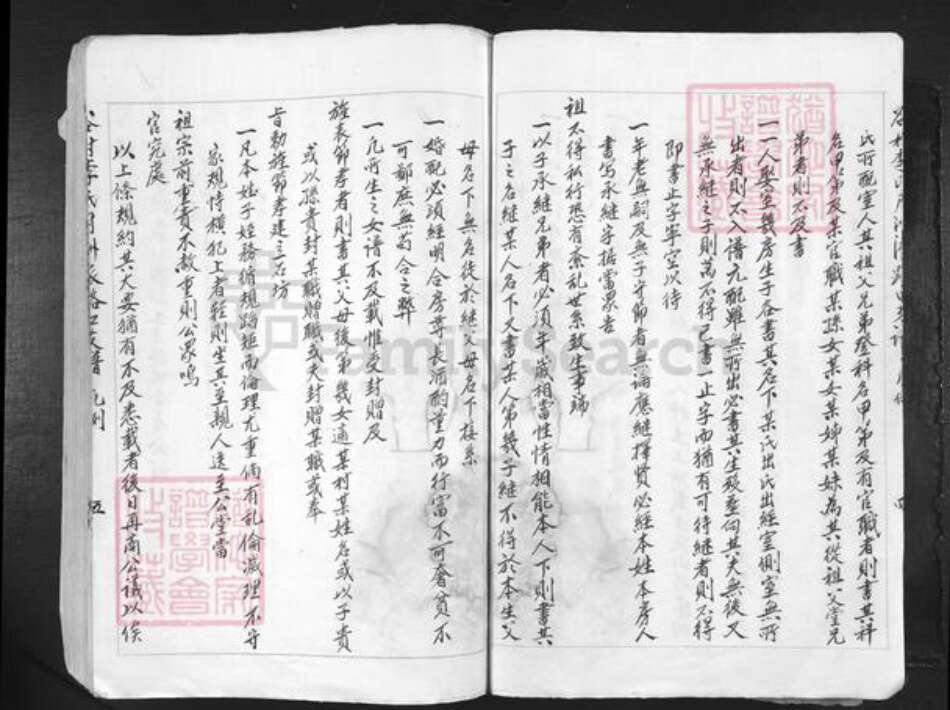 氏所配室人其祖父兄弟登科名甲第及有官職者則書其科
名甲第及某官職某孫女某女某姊某妹為其從祖父堂兄
弟者則不及書
一一人娶室幾房生子各書其名下某氏出氏出經室側室無所
出者則不入譜元配雖無所出必書其生歿並向其夫無後又
無承繼之子則萬不得已書一止字而猶有可待繼者則不得
即書止字寧空以待
一年老無嗣及無子守節者無論應繼擇賢必經本姓本房人
書寫承繼字據當眾告
祖不得私行恐有紊乱世系致生事端
一以子承繼兄弟者必須年歲相當性情相能本人下則書其
子之名繼某人名下又書某人第幾子繼不得於本生父
母名下無名從於繼父母名下接系
一婚配必須經明合房尊長酒酌量力而行富不可奢貧不
可鄙庶無苟合之弊
一凡所生之女譜不及載惟受封贈及
旌表節孝者則書其父母後第幾女適某村某姓名或以子貴
或以孫貴封某職贈職或夫封贈某職或奉
旨勅旌節孝建立石坊
一凡本姓子姪務循規蹈矩而倫理尤重倘有乱倫滅理不守
家規恃橫犯上者輕則坐其至親人送至公堂當
祖宗前重責不赦重則公眾鳴
官究處
以上條規約其大要猶有不及悉載者後日再商公議以俟
凡例
五
四
FamilySearch